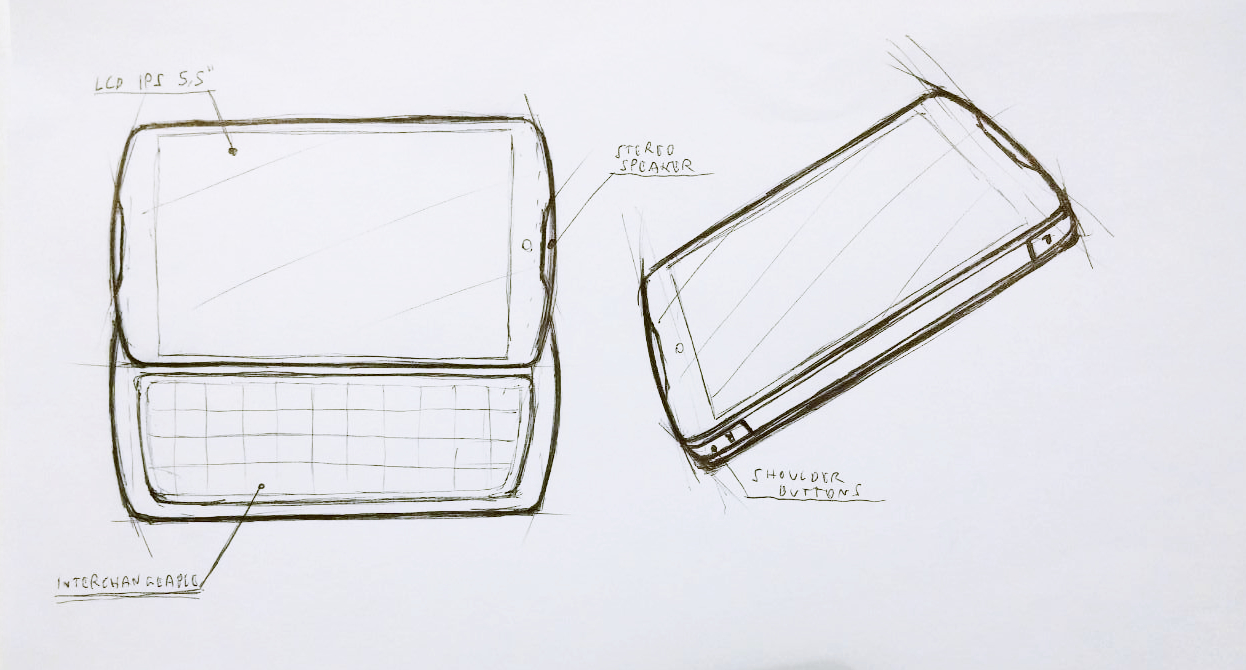 LCD IPS 5,5"
STEREO
SPEAKER
SHOULDER
BUTTONS
INTERCHANGEABLE